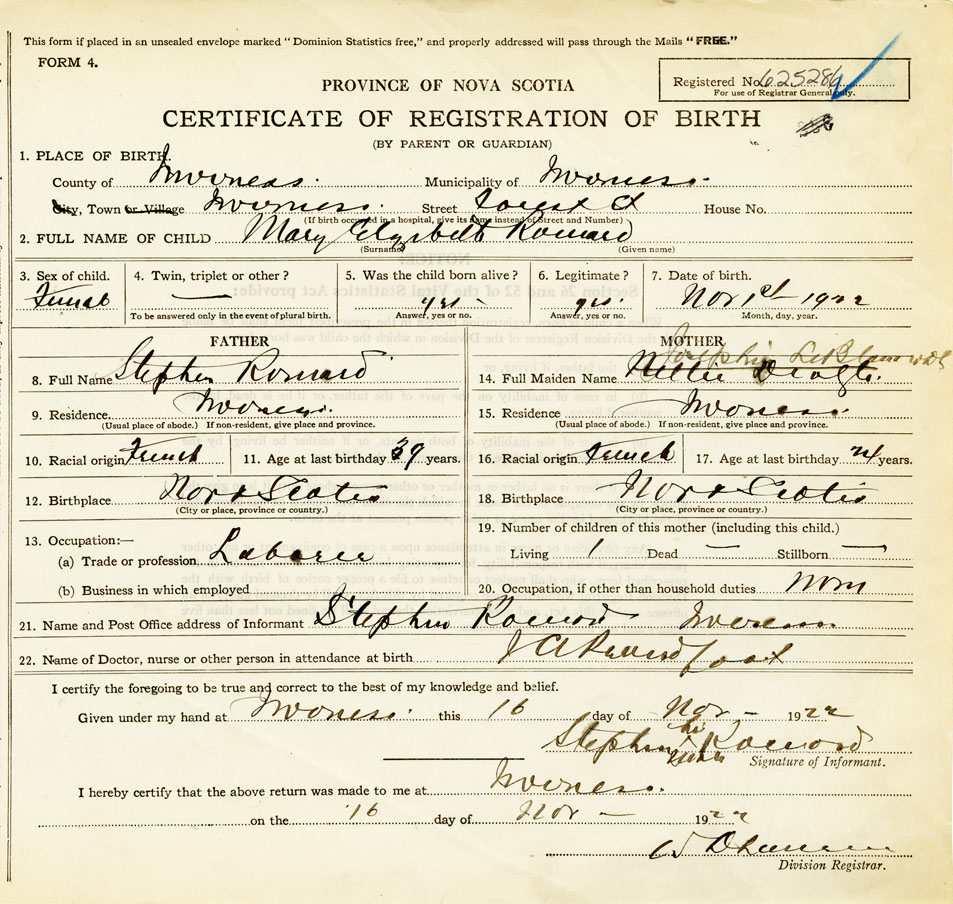 This form if placed in an unsealed envelope marked "Dominion Statistics free," and properly addressed will pass through the Mails "FREE."
FORM 4.
PROVINCE OF NOVA SCOTIA
Registered No. 625286
For use of Registrar General only.
CERTIFICATE OF REGISTRATION OF BIRTH
(BY PARENT OR GUARDIAN)
1. PLACE OF BIRTH.
County of Inverness. Municipality of Inverness.
City, Town or Village Inverness. Street Forest St House No.
(If birth occurred in a hospital, give its name instead of Street and Number)
2. FULL NAME OF CHILD Mary Elizabeth Romard
(Surname) (Given name)
3. Sex of child. 4. Twin, triplet or other? 5. Was the child born alive? 6. Legitimate? 7. Date of birth.
Female — yes - yes. Nov 1st - 1922
To be answered only in the event of plural birth. Answer, yes or no. Answer, yes or no. Month, day, year.
FATHER MOTHER
Josephine LeBlanc
8. Full Name Stephen Romard 14. Full Maiden Name Nellie
9. Residence Inverness. 15. Residence Inverness.
(Usual place of abode.) If non-resident, give place and province. (Usual place of abode.) If non-resident, give place and province.
10. Racial origin French 11. Age at last birthday 39 years. 16. Racial origin French 17. Age at last birthday 24 years.
12. Birthplace Nova Scotia 18. Birthplace Nova Scotia
(City or place, province or country.) (City or place, province or country.)
13. Occupation:— 19. Number of children of this mother (including this child.)
(a) Trade or profession Laborer Living 1 Dead — Stillborn —
(b) Business in which employed 20. Occupation, if other than household duties None
21. Name and Post Office address of Informant Stephen Romard Inverness
22. Name of Doctor, nurse or other person in attendance at birth J A Proudfoot
I certify the foregoing to be true and correct to the best of my knowledge and belief.
Given under my hand at Inverness. this 16 day of Nov - 1922
Stephen his mark Romard
Signature of Informant.
I hereby certify that the above return was made to me at Inverness.
on the 16 day of Nov — 1922
Division Registrar.